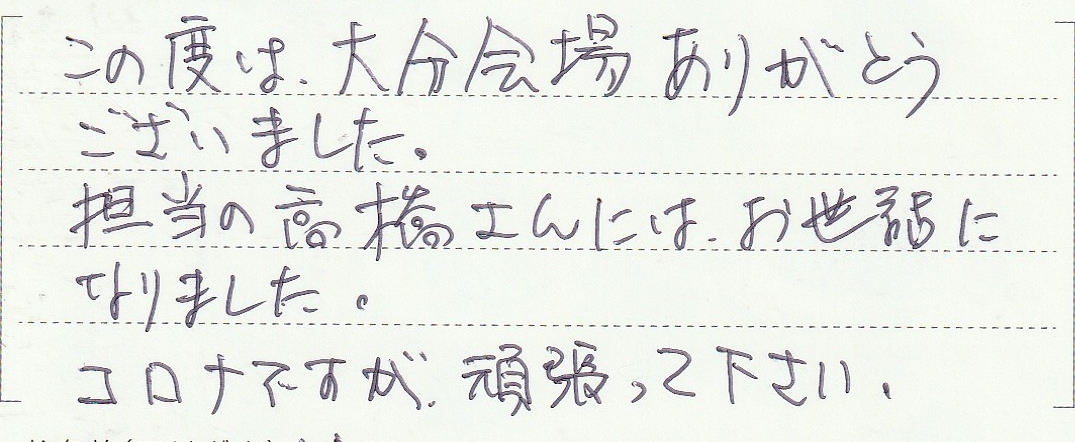 この度は、大分会場ありがとう
ございました。
担当の高橋さんには、お世話に
なりました。
コロナですが、頑張って下さい、